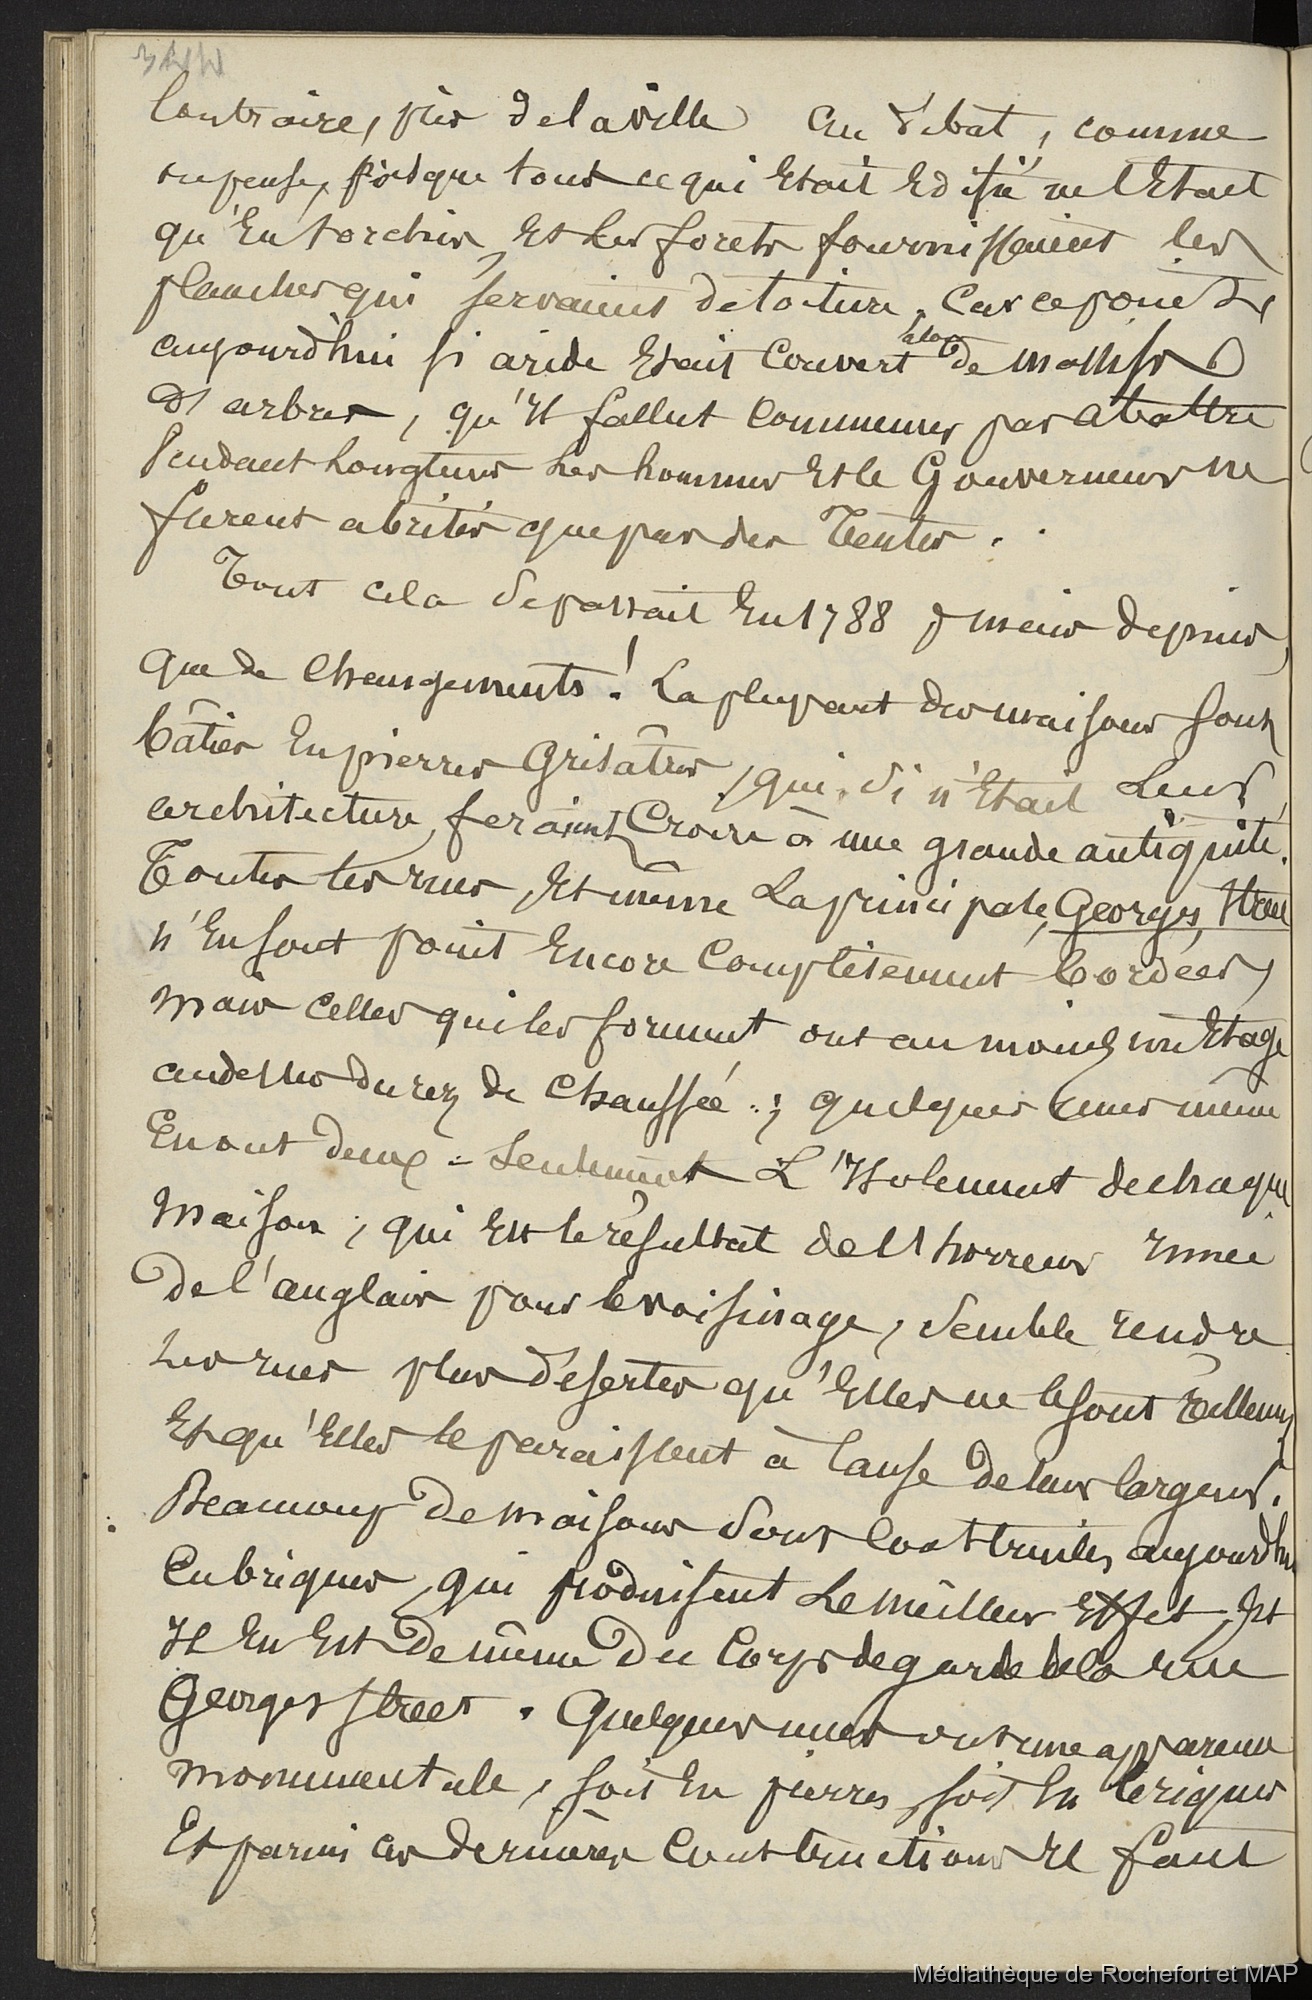 Contraire, près de la ville au débat, comme
on pense, puisque tout ce qui Etait Edifié ne l'Etait
qu'En torchis, Et les forets fournissaient les
planches qui servaient de toiture. Car ce point
aujourd'hui si aride Etait Couvert alors de massifs
d'arbres, qu'il fallut Commencer par abattre
Pendant Longtems Les hommes Et le Gouverneur ne
furent abrités que par des Tentes.
Tout cela se passait En 1788, mais depuis,
que de Changements! La plupart des maisons sont
bâties En pierres Grisâtres, qui, si n'Etait Leur
architecture, feraient Croire à une grande antiquité.
Toutes les rues, Et même La principale, Georges Street
n'En sont point Encore Complètement bordées,
mais Celles qui les forment ont au moins un Etage
au dessus du rez de Chaussée; quelques unes même
En ont deux - Seulement L'Isolement de chaque
maison, qui Est le résultat de l'horreur innée
De l'anglais pour le voisinage, semble rendre
Les rues plus désertes qu'Elles ne le sont réellement
Et qu'Elles le paraissent à Cause de leur largeur.
Beaucoup De maisons sont Construites aujourd'hui
En briques, qui produisent Le meilleur Effet, Et
Il En Est De même Du Corps de garde de la rue
Georges Street. Quelques unes ont une apparence
monumentale, soit En pierres, soit En briques
Et parmi Ces dernières Constructions Il faut
Médiathèque de Rochefort et MAP